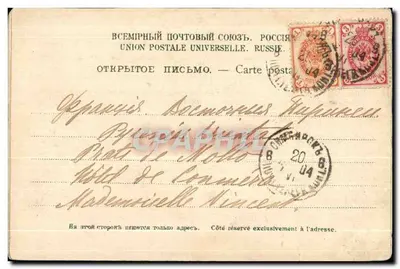 ВСЕМІРНЫЙ ПОЧТОВЫЙ СОЮЗЪ. РОССІЯ
UNION POSTALE UNIVERSELLE. RUSSIE.
ОТКРЫТОЕ ПИСЬМО. — Carte posta
Франція Восточная Пиринеи
Prats de Mollo
Hôtel de Commerce
Mademoiselle Vincent
СИМБИРСКЪ
20
04
На этой сторонѣ пишется только адресъ. Côté réservé exclusivement à l'adresse.